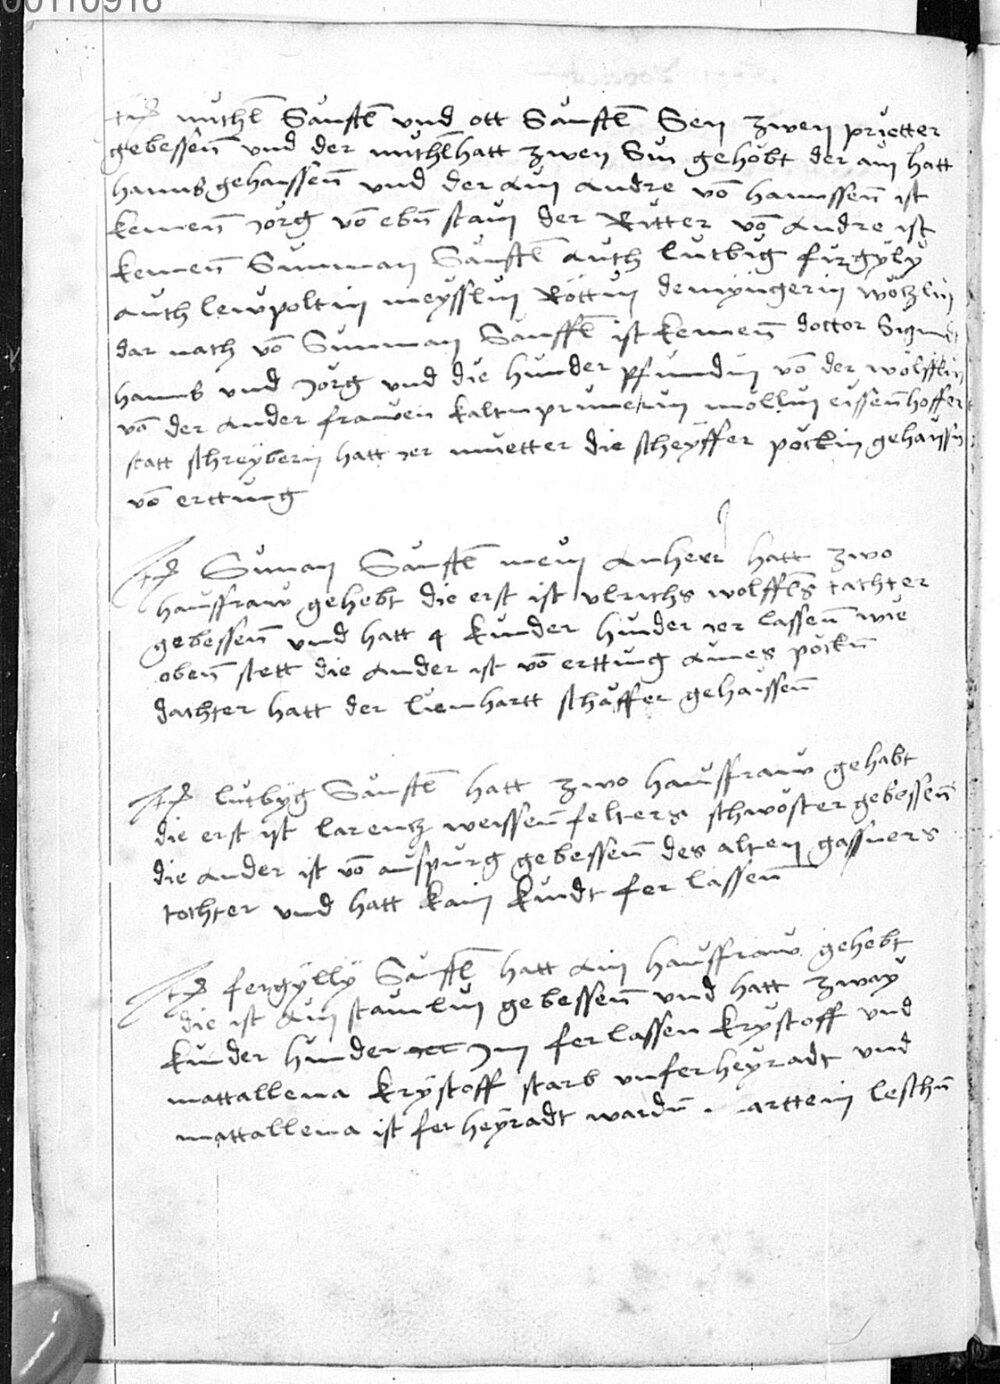 00110916
Itm michl Sänftl vnd ott Sänftl Sen zwen pruetter
gebessenn vnd der michl hatt zwen Sün gehöbt der ain hatt
hanns gehaissenn vnd der ain andre võ hannssenn ist
kemenn Jörg võ ebn stain der Ritter võ andre ist
kemenn Simman Sänftl auch lutbig firgÿlÿ
auch lewpoltin meysslin Röttin
dar nach võ Simman Sänfftl ist kemenn doctor Sigmdt
hanns vnd Jörg vnd die hinder pfundin võ der wolfflin
võ der ander frawen kaltnprunerin mollin eissennhoffer
statt schreyberin hatt ier muetter die scheyffer pöckin gehaissn
võ erttung
Itm Siman Sänftl mein anherr hatt zwo
haussfraw gehebt die erst ist vlrichs wolfftls tachter
gebessenn vnd hatt 4 kinder hinder ier lassenn wie
obenn stett die ander ist võ erttung aines pöckn
dachter hatt der lienhartt schäffer gehaissenn
Itm lutbÿg Sänftl hatt zwo haussfraw gehabt
die erst ist larentz weissennfelters schwöster gebessenn
die ander ist võ auspurg gebessenn des alten gassners
tochter vnd hatt kain kindt fer lassenn
Itm fergÿllÿ Sänftl hatt ain haussfraw gehebt
die ist ain stainlin gebessenn vnd hatt zway
kinder hinder im fer lassen krÿstoff vnd
mattallena krÿstoff starb vnferheyradt vnd
mattallena ist fer heÿradt wardn marttein leschn